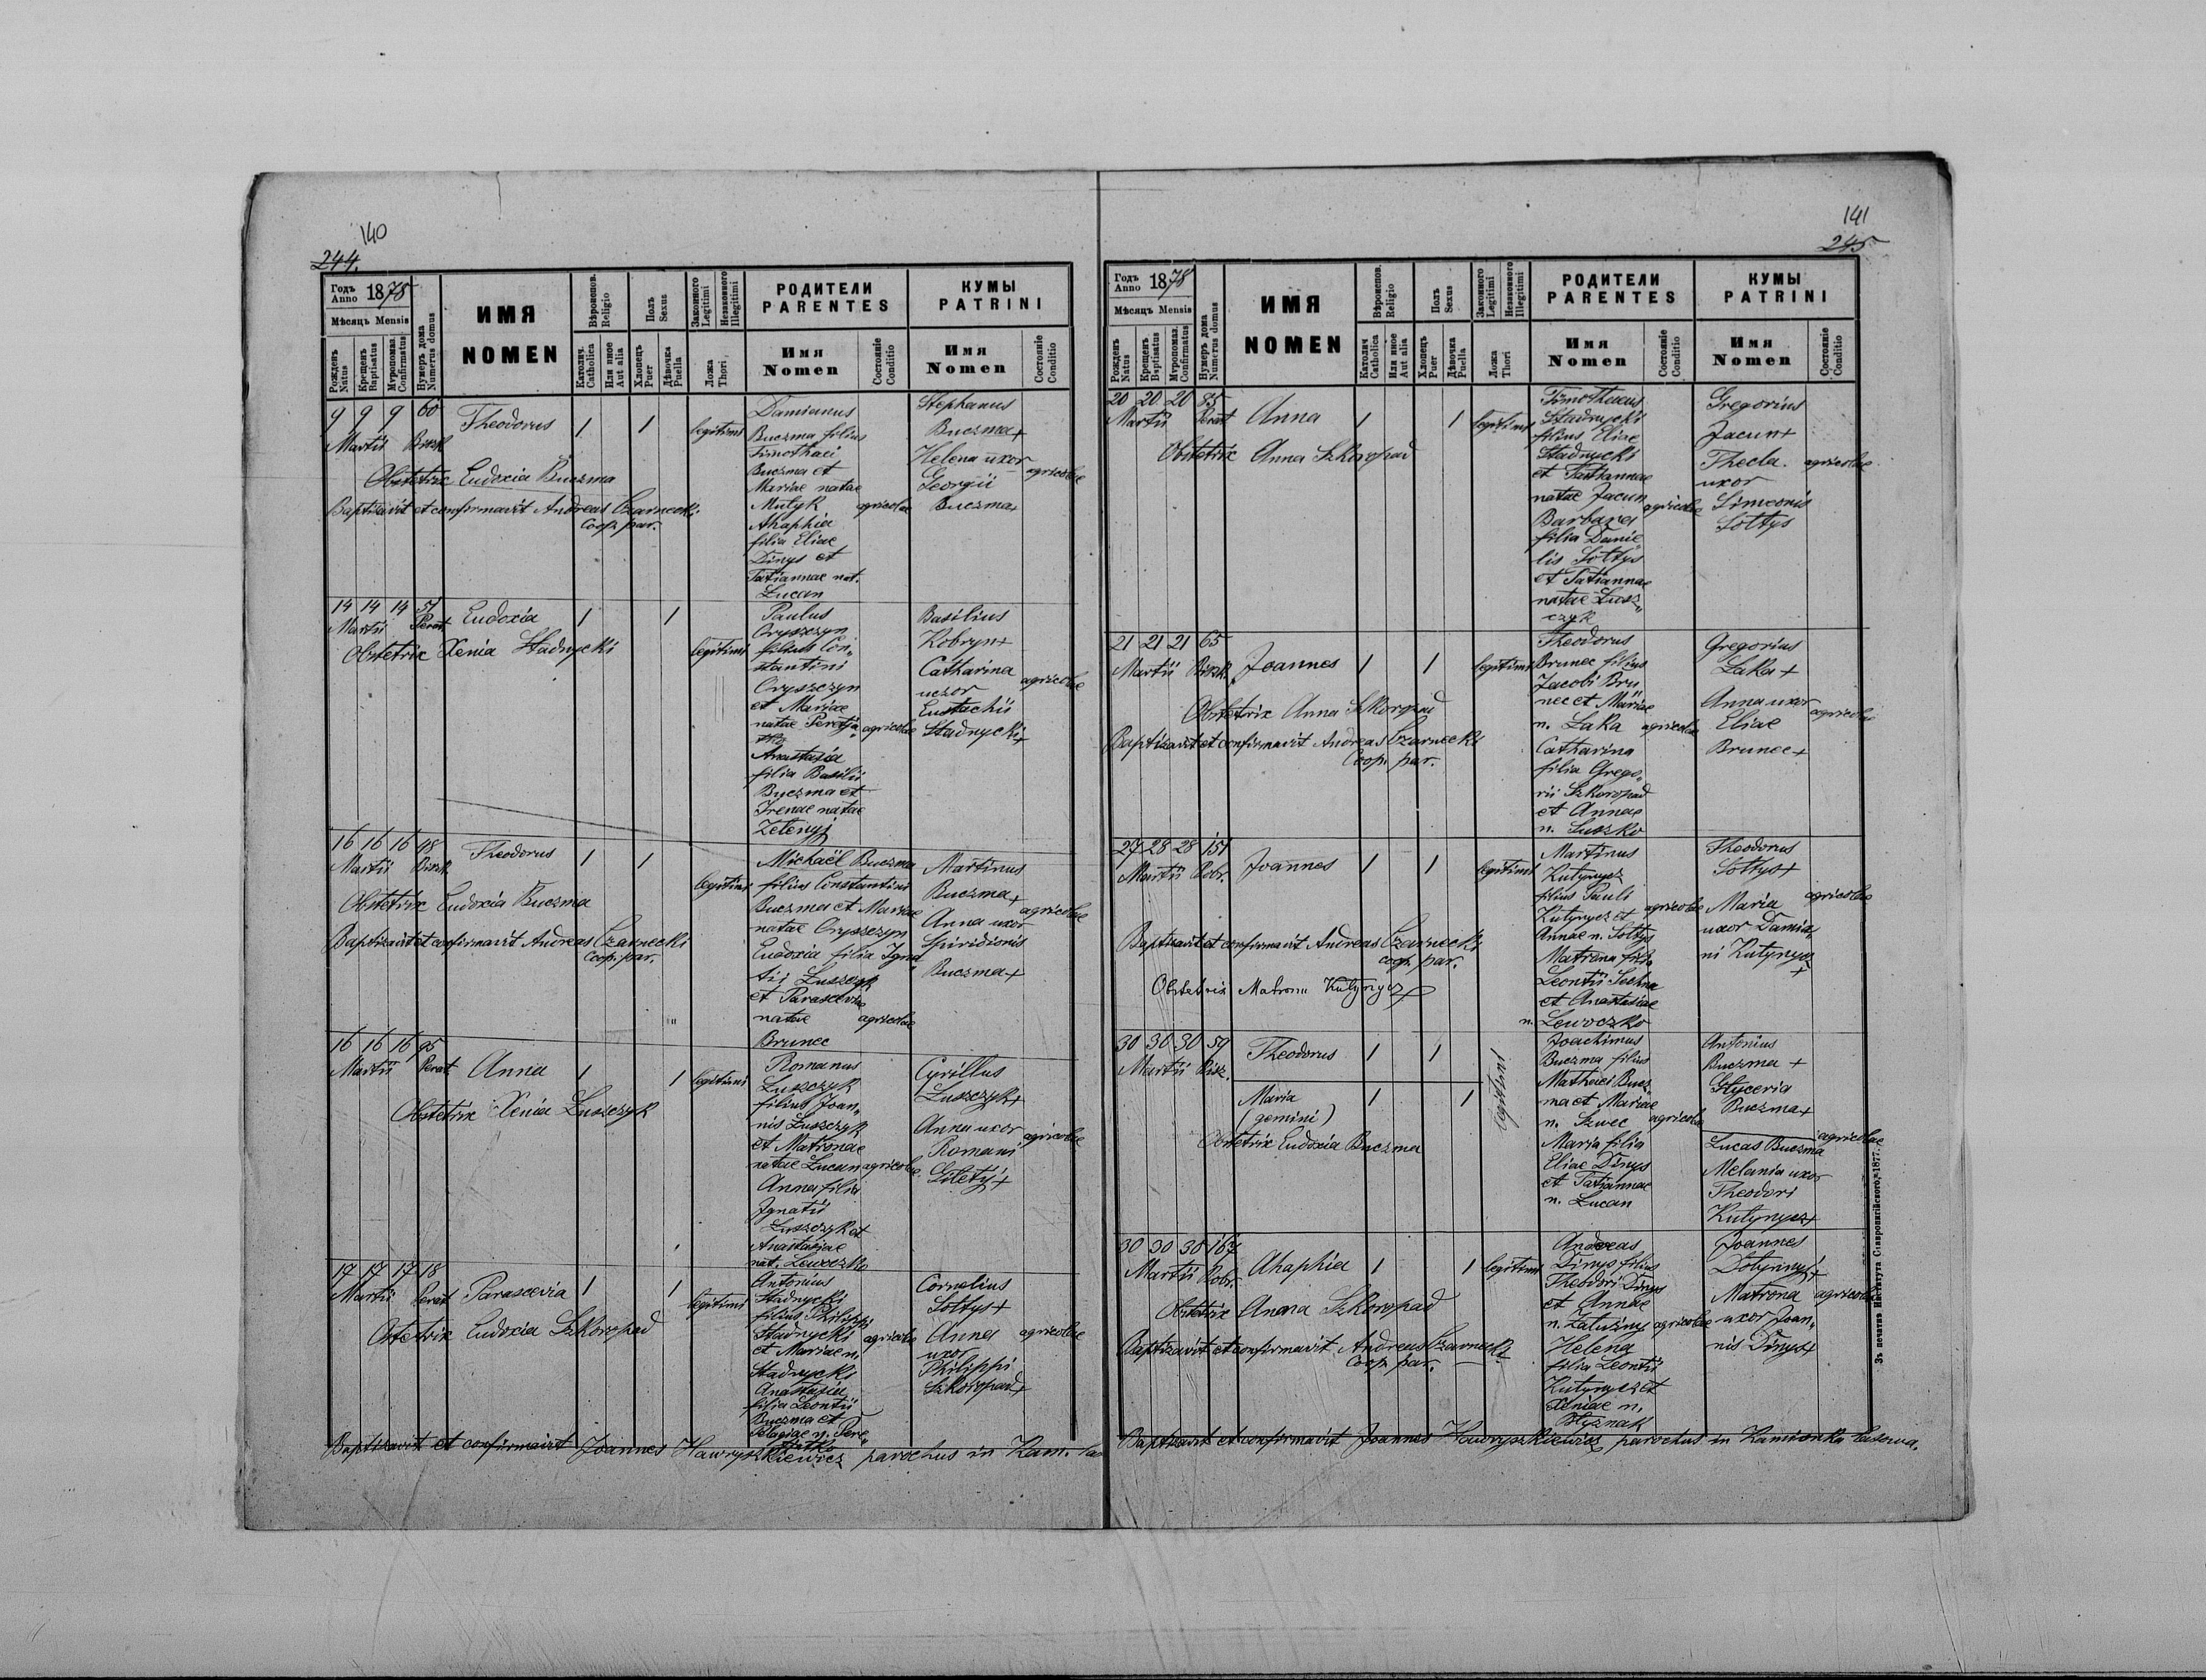 140
244.
Годъ Anno 1878
Мѣсяцъ Mensis
Рожденъ Natus
Крещенъ Baptisatus
Мѵропомаз. Confirmatus
Нумеръ дома Numerus domus
ИМЯ
NOMEN
Вѣроисповѣд. Religio
Католич. Catholica
Или иное Aut alia
Полъ Sexus
Хлопецъ Puer
Дѣвочка Puella
Законного Legitimi
Незаконного Illegitimi
Ложа Thori
РОДИТЕЛИ
PARENTES
Имя
Nomen
Состояніе Conditio
КУМЫ
PATRINI
Имя
Nomen
Состояніе Conditio
9 9 9 60
Martii
Theodorus
1 1
legitimi
Damianus
Buczma filius
Timothaei
Buczma et
Mariae natae
Mutyk agricolae
Ahaphia
filia Eliae
Dinys et
Tatiannae nat.
Lucan
Stephanus
Buczma+
Helena uxor
Georgii agricolae
Buczma+
Obstetrix Eudoxia Buczma
Baptizavit et confirmavit Andreas Czarnecki
Coop. par.
14 14 14 51
Martii Perat
Eudoxia
1 1
legitimi
Paulus
Oryszczyn
filius Con„
stantini
Oryszczyn
et Mariae
natae Peretja„ agricolae
tko
Anastasia
filia Basilii
Buczma et
Irenae natae
Zelenyj
Basilius
Kobryn+
Catharina agricolae
uxor
Eustachii
Stadnycki+
Obstetrix Xenia Stadnycki
16 16 16 48
Martii
Theodorus
1 1
legitimi
Michaël Buczma
filius Constantini
Buczma et Mariae
natae Oryszczyn
Eudoxia filia Igna„
tii Luszczyk
et Parasceviae
natae agricolae
Brunec
Martinus
Buczma+
Anna uxor agricolae
Spiridionis
Buczma+
Obstetrix Eudoxia Buczma
Baptizavit et confirmavit Andreas Czarnecki
Coop. par.
16 16 16 95
Martii Perat
Anna
1 1
legitimi
Romanus
Luszczyk
filius Joan„
nis Luszczyk
et Matronae
natae Lucan agricolae
Anna filia
Ignatii
Luszczyk et
Anastasiae
nat. Lewoczko
Cyrillus
Luszczyk+
Anna uxor agricolae
Romani
Obstetrix Xenia Luszczyk
17 17 17 18
Martii Perat
Parascevia
1 1
legitimi
Antonius
Stadnycki
filius Philippi
Stadnycki agricolae
et Mariae n.
Stadnycki
Anastasia
filia Leontii
Buczma et
Pelagiae n. Pere„
tiatko
Cornelius
Sołtys+
Anna agricolae
uxor
Philippi
Szkoropad+
Obstetrix Eudoxia Szkoropad
Baptizavit et confirmavit Joannes Hawryszkiewicz parochus in Kam.
141
245
Годъ Anno 1878
Мѣсяцъ Mensis
Рожденъ Natus
Крещенъ Baptisatus
Мѵропомаз. Confirmatus
Нумеръ дома Numerus domus
ИМЯ
NOMEN
Вѣроисповѣд. Religio
Католич Catholica
Или иное Aut alia
Полъ Sexus
Хлопецъ Puer
Дѣвочка Puella
Законного Legitimi
Незаконного Illegitimi
Ложа Thori
РОДИТЕЛИ
PARENTES
Имя
Nomen
Состояніе Conditio
КУМЫ
PATRINI
Имя
Nomen
Состояніе Conditio
20 20 20 85
Martii Perat
Anna
1 1
legitimi
Timotheus
Stadnycki
filius Eliae
Stadnycki
et Tatiannae
natae Jacun
Barbara agricolae
filia Danie„
lis Sołtys
et Tatiannae
natae Lusz„
czyk
Gregorius
Jacun+
Thecla agricolae
uxor
Simeonis
Sołtys
Obstetrix Anna Szkoropad
21 21 21 65
Martii
Joannes
1 1
legitimi
Theodorus
Brunec filius
Jacobi Bru„
nec et Mariae
n. Łaka agricolae
Catharina
filia Grego„
rii Szkoropad
et Annae
n. Luszko
Gregorius
Łaka+
Anna uxor
Eliae agricolae
Brunec+
Obstetrix Anna Szkoropad
Baptizavit et confirmavit Andreas Czarnecki
Coop. par.
27 28 28 151
Martii Pobr.
Joannes
1 1
legitimi
Martinus
Kutynycz
filius Pauli
Kutynycz et agricolae
Annae n. Sołtys
Matrona filia
Leontii
et Anastasiae
n. Lewoczko
Theodorus
Sołtys+
Maria agricolae
uxor Damia„
ni Kutynycz
+
Baptizavit et confirmavit Andreas Czarnecki
coop. par.
Obstetrix Matrona Kutynycz
30 30 30 59
Martii
Theodorus
1 1
Maria
(gemini)
1 1
legitimi
Joachimus
Buczma filius
Mathaei Bucz„
ma et Mariae
n. Szwec agricolae
Maria filia
Eliae Dinys
et Tatiannae
n. Lucan
Antonius
Buczma+
Glyceria
Buczma+
Lucas Buczma agricolae
Melania uxor
Theodori
Kutynycz+
Obstetrix Eudoxia Buczma
30 30 30 167
Martii Pobr.
Ahaphia
1 1
legitimi
Andreas
Dinys filius
Theodori Dinys
et Annae
n. Załużny agricolae
Helena
filia Leontii
Kutynycz et
Xeniae n.
Błyznak
Joannes
Dołynnyj+
Matrona agricolae
uxor Joan„
nis Dinys+
Obstetrix Anna Szkoropad
Baptizavit et confirmavit Andreas Czarnecki
Coop. par.
Baptizavit et confirmavit Joannes Hawryszkiewicz parochus in Kamionka lasowa.
Зъ печатнѣ Института Ставропигійского, 1877.